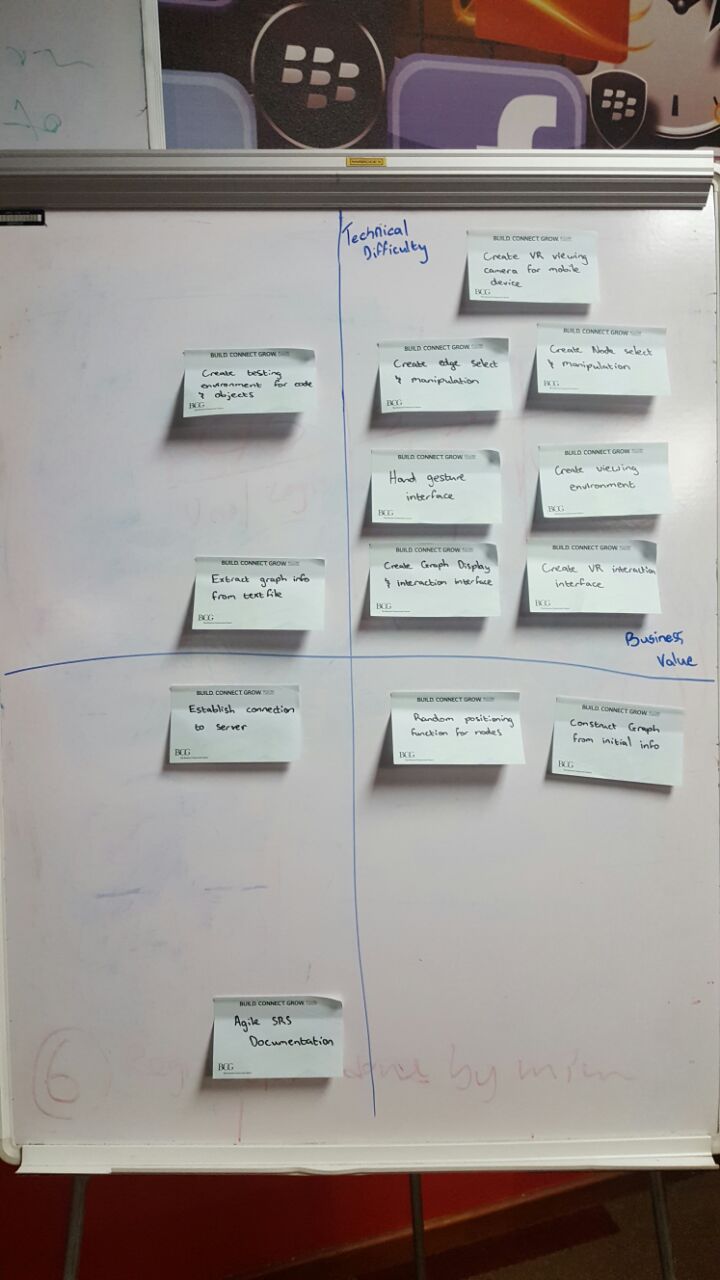 Technical
Difficulty
BUILD. CONNECT. GROW.
Create VR viewing
camera for mobile
device
BCG
BUILD. CONNECT. GROW.
Create testing
environment for code
& objects
BCG
BUILD. CONNECT. GROW.
Create edge select
& manipulation
BCG
BUILD. CONNECT. GROW.
Create Node select
& manipulation
BCG
BUILD. CONNECT. GROW.
Hand gesture
interface
BCG
BUILD. CONNECT. GROW.
Create viewing
environment
BCG
BUILD. CONNECT. GROW.
Extract graph info
from text file
BCG
BUILD. CONNECT. GROW.
Create Graph Display
& interaction interface
BCG
BUILD. CONNECT. GROW.
Create VR interaction
interface
BCG
Business
Value
BUILD. CONNECT. GROW.
Establish connection
to server
BCG
BUILD. CONNECT. GROW.
Random positioning
function for nodes
BCG
BUILD. CONNECT. GROW.
Construct Graph
from initial info
BCG
BUILD. CONNECT. GROW.
Agile SRS
Documentation
BCG
6
by